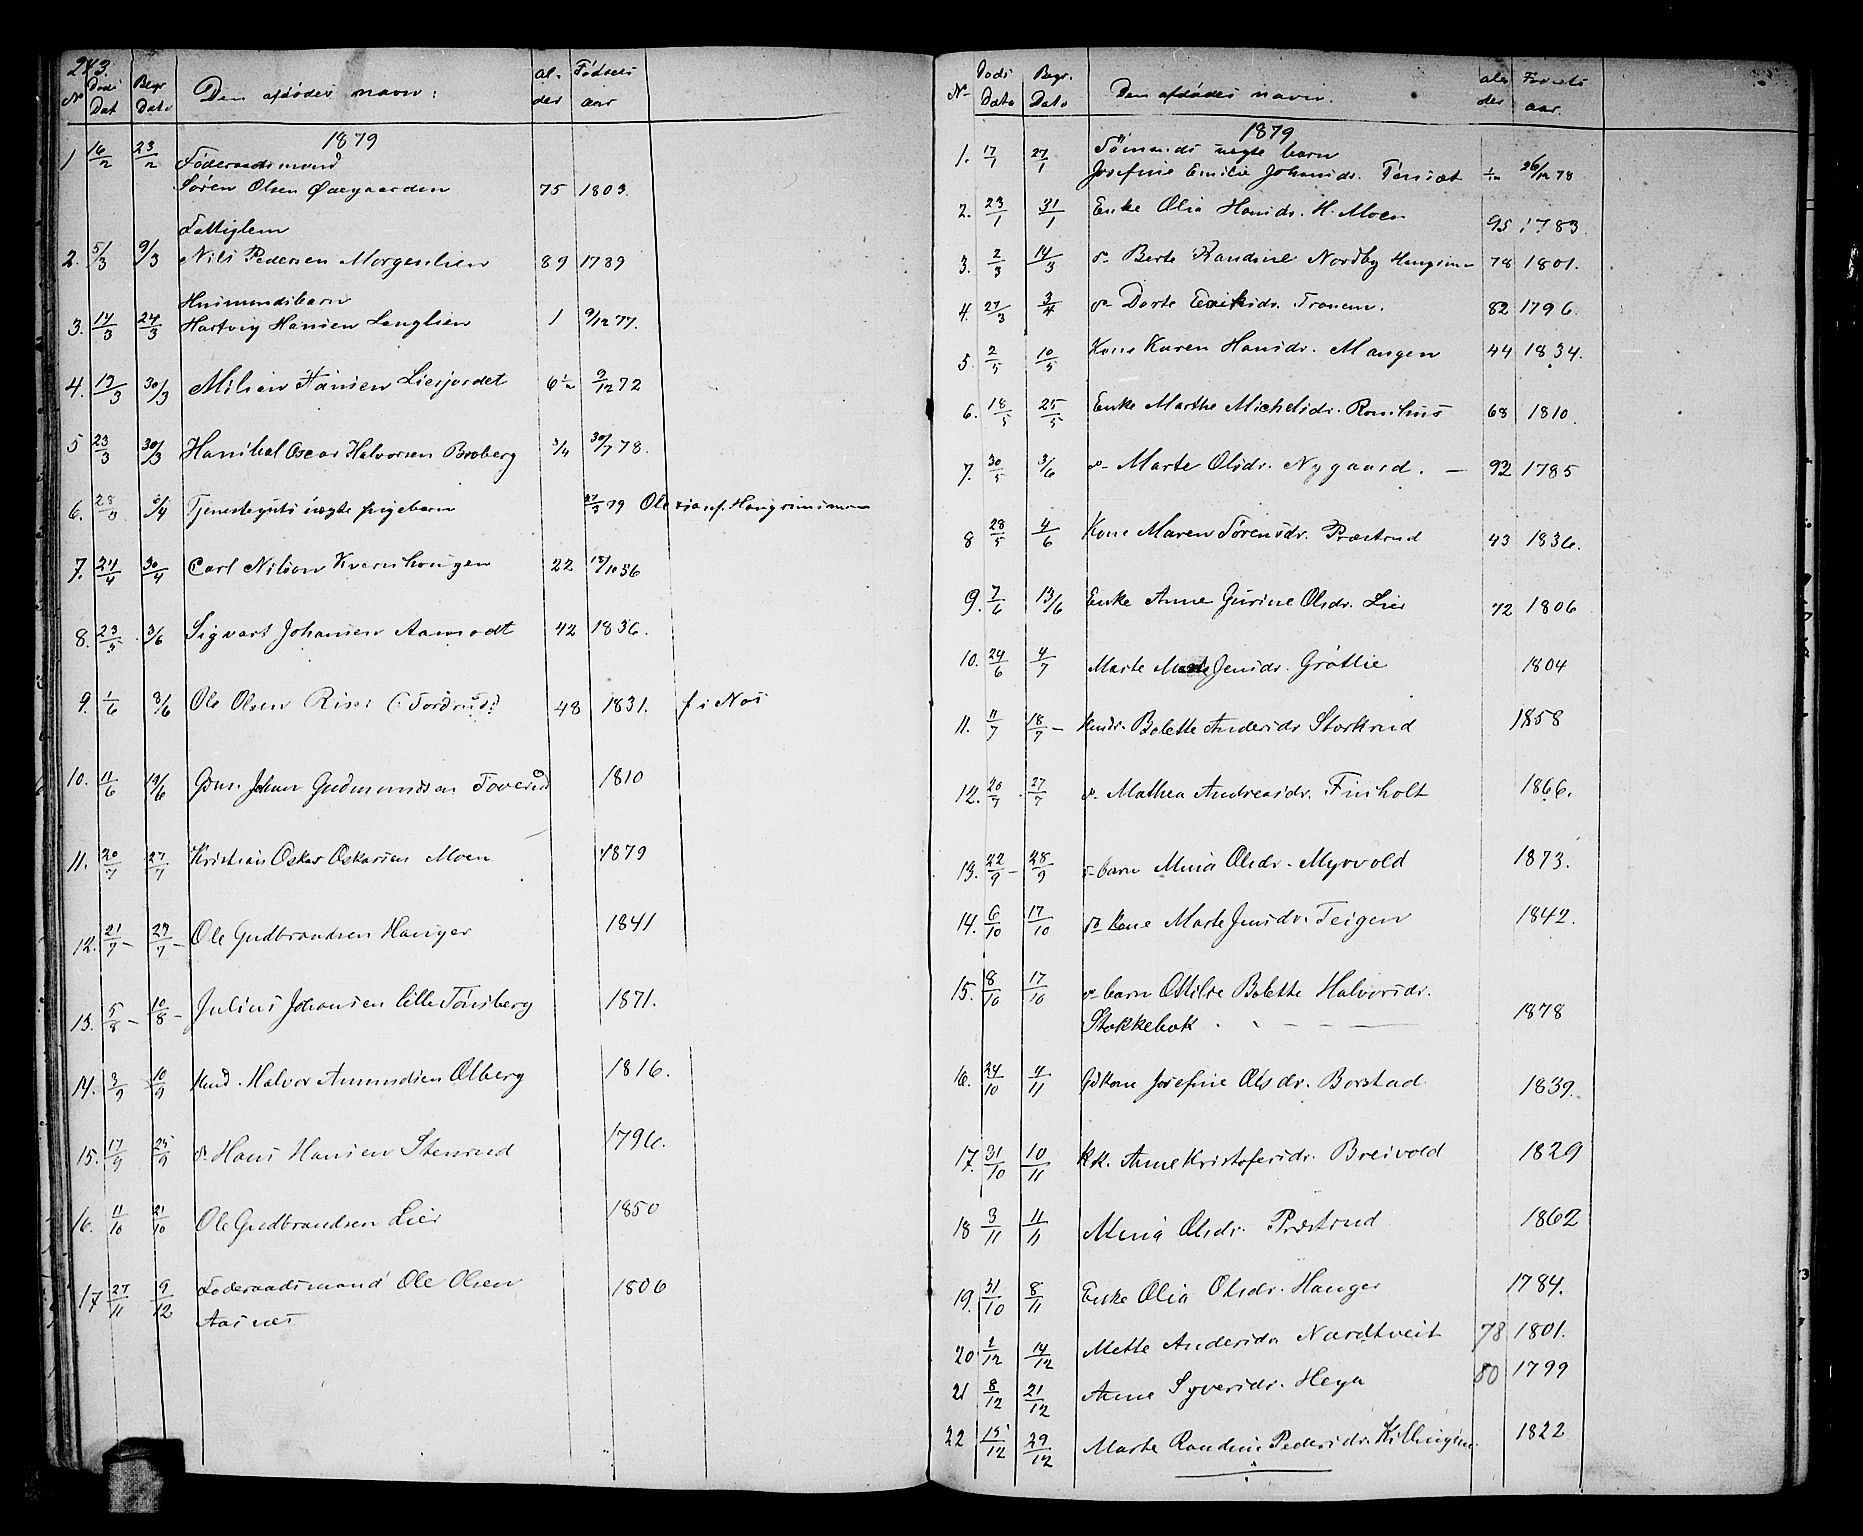 243.
No Døds Dat Begr Dato Den afdødes navn: al- der Fødsels aar
1879
1 16/2 23/2 Føderaadsmand
Søren Olsen Ødegaarden 75 1803.
Fattiglem
2. 5/3 9/3 Nils Pedersen Morgenlien 89 1789
Husmandsbarn
3. 14/3 24/3 Hartvig Hansen Langlien 1 9/12 77.
4. 19/3 30/3 Milsen Hansen Liesjordet 6 1/2 9/12 72
5 23/3 30/3 Hanibal Oscar Halvorsen Broberg 3/4 30/7 78.
6. 28/3 /4 Tjenesteguts uægte pigebarn 27/3 79 Ole
7. 24/4 30/4 Carl Nilsen Kvernhougen 22 18/10 56
8. 23/5 3/6 Sigvart Johansen Aamodt 42 1836.
9. 1/6 3/6 Ole Olsen Riser (: Tordrud: 48 1831. f i Nos
10. 11/6 19/6 Gdm. Johan Gudmundsen Toverud 1810
11. 20/7 27/7 Kristian Oskar Oskarsen Moen 1879
12. 21/7 – 27/7 – Ole Gudbrandsen Hanger 1841
13. 5/8 – 10/8 – Julius Johansen lille Tønsberg 1871.
14. 3/9 10/9 Husd. Halvor Amundsen Olberg 1816.
15. 17/9 25/9 do Hans Hansen Stenrud 1796.
16. 11/10 21/10 Ole Gudbrandsen Lier 1850
17 27/11 9/12 Føderaadsmand Ole Olsen 1806
Aasnes
No Døds Dato Begr. Dato Den afdødes navn. al- der Fødsels aar.
1879
1. 17/1 27/1 Tømands uægte barn
Josefine Emilie Johansdr. 1/12 26/12 78
2. 23/1 31/1 Enke Olia Hansdr. H. Moen 95 1783.
3. 2/3 14/3 do Berte Randine Nordby 78 1801.
4. 27/3 3/4 do Dorte Eriksdr. Tronen. 82 1796.
5 2/5 10/5 Kone Karen Hansdr. Mangen 44 1834.
6. 18/5 25/5 Enke Marthe Michelsdr. Romhus 68 1810.
7. 30/5 3/6 do Marte Olsdr. Nygaard. – 92 1785
8 28/5 4/6 Kone Maren Sørensdr. Præstrud 43 1836.
9. 7/6 13/6 Enke Anne Gurine Olsdr. Lier 72 1806
10. 24/6 4/7 Marte Jensdr. Grøtlie 1804
11. 11/7 18/7 – Husdr. Bolette Andersdr Storkrud 1858
12. 20/7 27/7 do Mathea Andreasdr. Finholt 1866.
13. 22/9 – 28/9 do barn Mina Olsdr. Myrvold 1873.
14. 6/10 17/10 do kone Marte Jensdr. Teigen 1842.
15. 8/10 17/10 do barn Ottilde Bolette Halvorsdr.
Stokkebæk 1878
16. 24/10 4/11 Gdkone Josefine Olsdr. Borstad 1839.
17. 31/10 10/11 KK. Anne Kristofersdr. Breivold 1829
18 3/11 11/11 Mina Olsdr. Præstrud 1862
19. 31/10 8/11 Enke Olia Olsdr. Hanger 1784.
20 2/12 14/12 Mette Andersdr Nordtveit 78 1801.
21 8/12 21/12 Anne Syversdr. Heya 80 1799
22 15/12 29/12 Marte Randine Pedersdr. Killingen 1822